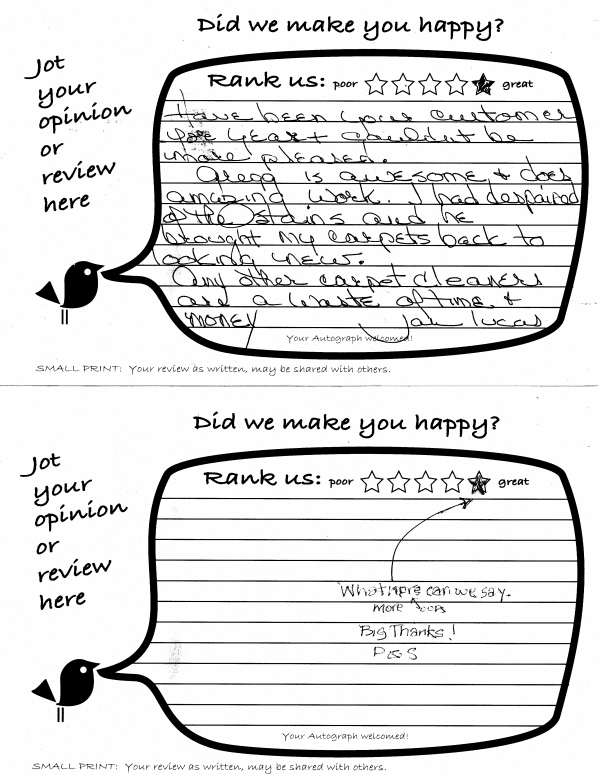 Did we make you happy?
Jot
your
opinion
or
review
here
Rank us: poor great
Have been your customer
for years + couldn't be
more pleased.
Gregg is awesome + does
amazing work. I had despaired
of the stains and he
brought my carpets back to
looking new.
Any other carpet cleaners
are a waste of time +
money
Jan Lucas
Your Autograph welcomed!
SMALL PRINT: Your review as written, may be shared with others.
Did we make you happy?
Jot
your
opinion
or
review
here
Rank us: poor great
What can we say.
more
Big Thanks!
Your Autograph welcomed!
SMALL PRINT: Your review as written, may be shared with others.